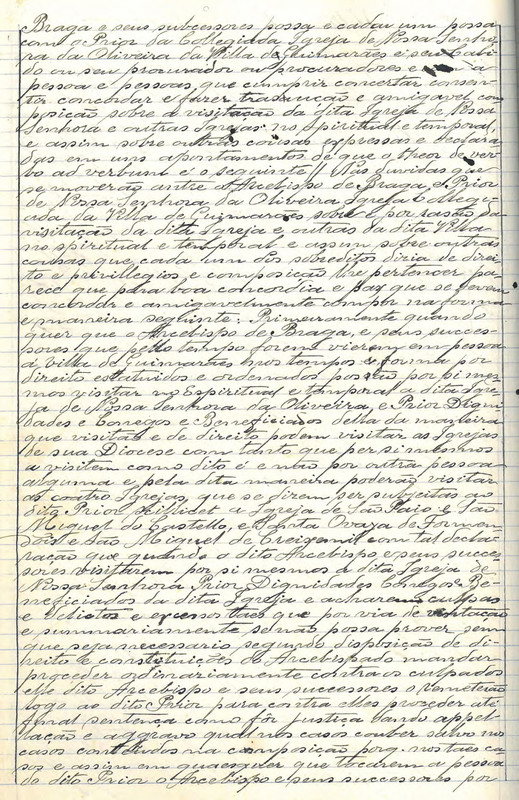 Braga e seus subcessores possa e cada um possa
com o Prior da Collegiada Igreja de Nossa Senho-
ra da Oliveira da Villa de Guimarães e seu Cabi-
do ou seu procurador ou procuradores e a
pessoa e pessoas, que cumprir concertar consen-
tir concordar e fazer transacção e amigavel com
posição sobre a visitação da dita Igreja de Nossa
Senhora e outras no spiritual e temporal,
e assim sobre outras cousas expressas e declara
das em uns apontamentos de que o theor de ver-
bo ad verbum é o seguinte // Nas duvidas que
se moverão antre o Arcebispo de Braga, e Prior
de Nossa Senhora da Oliveira Igreja Colleg-
iada da Villa de Guimarães sobre e por rasão da
visitação da dita Igreja e outras da dita Villa
no spiritual e temporal e assim sobre outras
cousas que cada um dos sobreditos diria de direi
to e privillegios e composição lhe pertencer pa
rece que para boa concordia e paz que se devem
concordar e amigavelmente compor na forma
e maneira seguinte: Primeiramente quando
quer que o Arcebispo de Braga, e seus succes-
sores que pello tempo forem vierem em pessoa
á villa de Guimarães nos tempos e forma por
direito estatuidos e ordenados possão por si mes
mos visitar no Espiritual e temporal a dita Igre
ja de Nossa Senhora da Oliveira, e Prior Digni
dades e Conegos e Beneficiados della da maneira
que visitão e de direito podem visitar as Igrejas
de sua Diocese com tanto que per si mesmos
a visitem como dito é e não por outra pessoa
alguma e pela dita maneira poderão visitar
as coatro Igrejas, que se dizem ser subjeitas ao
dito Prior scilicet a Igreja de São Paio e São
Miguel do Castello, e Santa Ovaya de Fermen
tões e São Miguel de Creixomil com tal decla-
ração que quando o dito Arcebispo e seus succes
sores visitarem por si mesmos a dita Igreja de
Nossa Senhora Prior Dignidades Conegos e Be-
neficiados da dita Igreja e acharem culpas
e delictos e excessos taes que por via de visitação
e summariamente se não possa prover sem
que seja necessario segundo disposição de di-
reito e constituições do Arcebispado mandar
proceder ordinariamente contra os culpados
elle dito Arcebispo e seus successores o remeterão
logo ao dito Prior para contra elles proceder até
final sentença como fôr justiça dando appel
lação e aggravo qual nos casos couber salvo nos
casos contendos na composição porq. nos taes ca
sos e assim em quaesquer que tocarem a pessoa
do dito Prior o Arcebispo e seus successores por